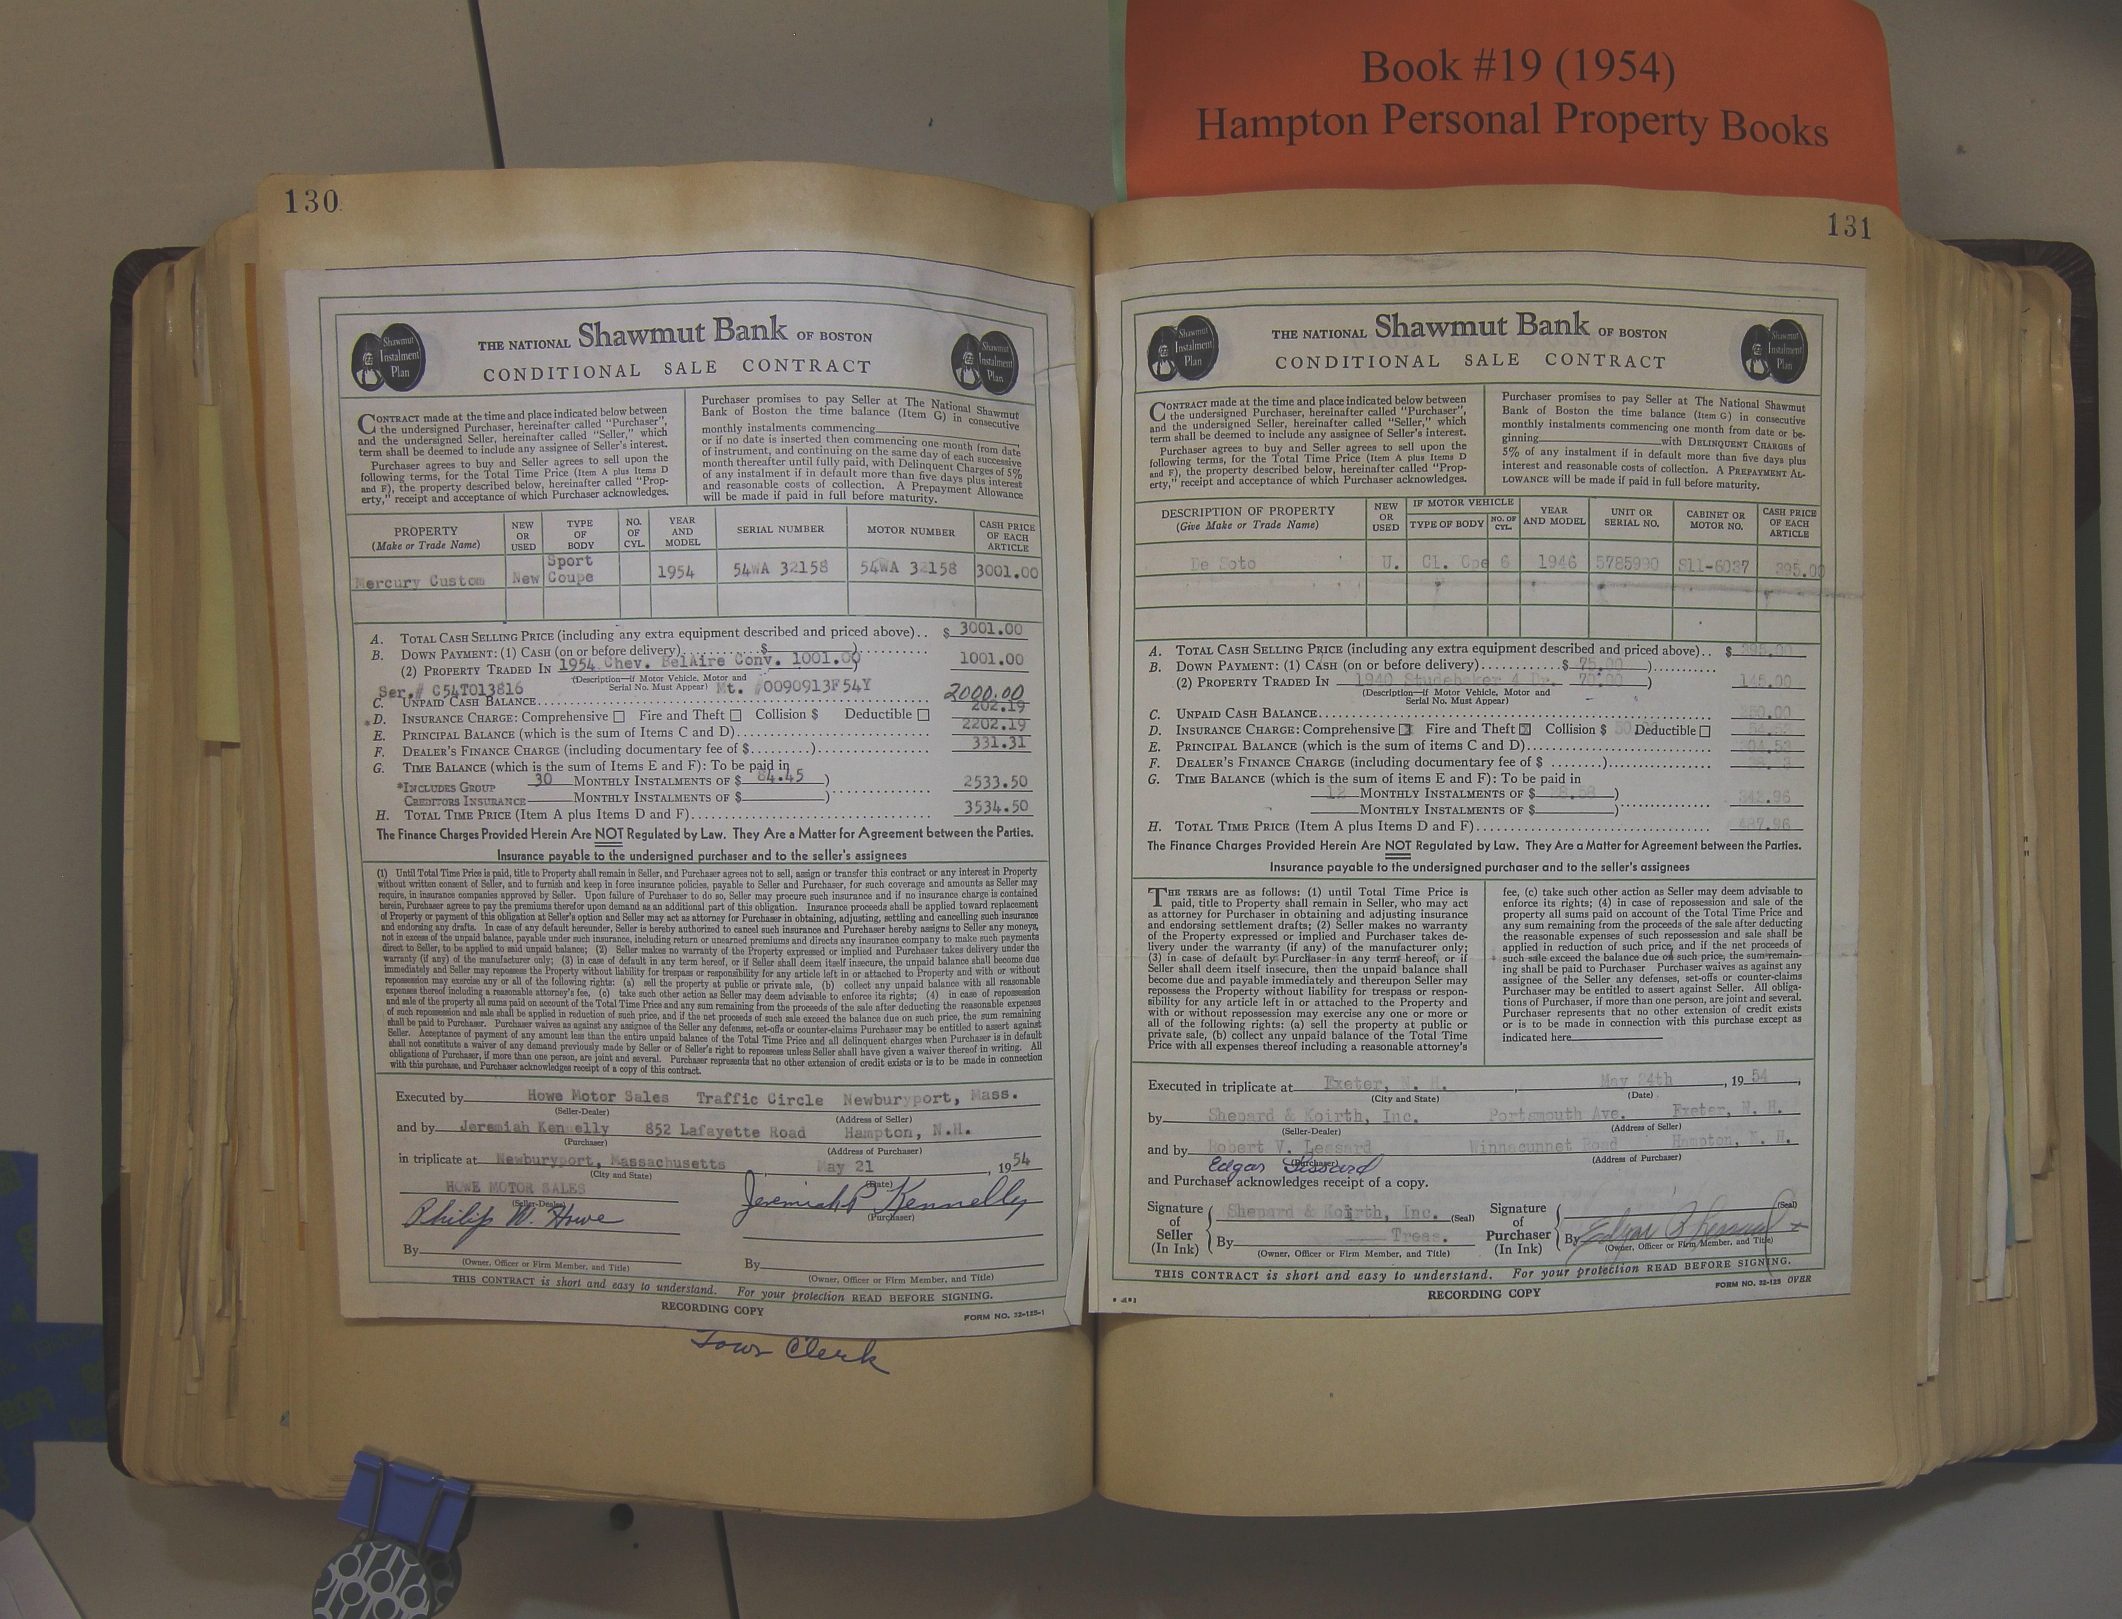 Book #19 (1954)
Hampton Personal Property Books
130
THE NATIONAL Shawmut Bank OF BOSTON
CONDITIONAL SALE CONTRACT
Shawmut
Instalment
Plan
Shawmut
Instalment
Plan
CONTRACT made at the time and place indicated below between
the undersigned Purchaser, hereinafter called "Purchaser",
and the undersigned Seller, hereinafter called "Seller," which
term shall be deemed to include any assignee of Seller's interest.
Purchaser agrees to buy and Seller agrees to sell upon the
following terms, for the Total Time Price (Item A plus Items D
and F), the property described below, hereinafter called "Prop-
erty," receipt and acceptance of which Purchaser acknowledges.
Purchaser promises to pay Seller at The National Shawmut
Bank of Boston the time balance (Item G) in consecutive
monthly instalments commencing
or if no date is inserted then commencing one month from date
of instrument, and continuing on the same day of each successive
month thereafter until fully paid, with Delinquent Charges of 5%
of any instalment if in default more than five days plus interest
and reasonable costs of collection. A Prepayment Allowance
will be made if paid in full before maturity.
PROPERTY (Make or Trade Name) NEW OR USED TYPE OF BODY NO. OF CYL. YEAR AND MODEL SERIAL NUMBER MOTOR NUMBER CASH PRICE OF EACH ARTICLE
Mercury Custom New Sport Coupe 1954 54WA 32158 54WA 32158 3001.00
A. TOTAL CASH SELLING PRICE (including any extra equipment described and priced above).. $ 3001.00
B. DOWN PAYMENT: (1) CASH (on or before delivery)..........$ )
(2) PROPERTY TRADED IN 1954 Chev. BelAire Conv. 1001.00 ) 1001.00
(Description—if Motor Vehicle, Motor and
Serial No. Must Appear)
Ser.# C54T013816 Mt. #0090913F54Y
C. UNPAID CASH BALANCE 2000.00
*D. INSURANCE CHARGE: Comprehensive Fire and Theft Collision $ Deductible 202.19
E. PRINCIPAL BALANCE (which is the sum of Items C and D) 2202.19
F. DEALER'S FINANCE CHARGE (including documentary fee of $.........) 331.31
G. TIME BALANCE (which is the sum of Items E and F): To be paid in
30 MONTHLY INSTALMENTS OF $ 84.45 ) 2533.50
*INCLUDES GROUP
CREDITORS INSURANCE MONTHLY INSTALMENTS OF $ )
H. TOTAL TIME PRICE (Item A plus Items D and F) 3534.50
The Finance Charges Provided Herein Are NOT Regulated by Law. They Are a Matter for Agreement between the Parties.
Insurance payable to the undersigned purchaser and to the seller's assignees
(1) Until Total Time Price is paid, title to Property shall remain in Seller, and Purchaser agrees not to sell, assign or transfer this contract or any interest in Property
without written consent of Seller, and to furnish and keep in force insurance policies, payable to Seller and Purchaser, for such coverage and amounts as Seller may
require, in insurance companies approved by Seller. Upon failure of Purchaser to do so, Seller may procure such insurance and if no insurance charge is contained
herein, Purchaser agrees to pay the premiums therefor upon demand as an additional part of this obligation. Insurance proceeds shall be applied toward replacement
of Property or payment of this obligation at Seller's option and Seller may act as attorney for Purchaser in obtaining, adjusting, settling and cancelling such insurance
and endorsing any drafts. In case of any default hereunder, Seller is hereby authorized to cancel such insurance and Purchaser hereby assigns to Seller any moneys,
not in excess of the unpaid balance, payable under such insurance, including return or unearned premiums and directs any insurance company to make such payments
direct to Seller, to be applied to said unpaid balance; (2) Seller makes no warranty of the Property expressed or implied and Purchaser takes delivery under the
warranty (if any) of the manufacturer only; (3) in case of default in any term hereof, or if Seller shall deem itself insecure, the unpaid balance shall become due
immediately and Seller may repossess the Property without liability for trespass or responsibility for any article left in or attached to Property and with or without
repossession may exercise any or all of the following rights: (a) sell the property at public or private sale, (b) collect any unpaid balance with all reasonable
expenses thereof including a reasonable attorney's fee, (c) take such other action as Seller may deem advisable to enforce its rights; (4) in case of repossession
and sale of the property all sums paid on account of the Total Time Price and any sum remaining from the proceeds of the sale after deducting the reasonable expenses
of such repossession and sale shall be applied in reduction of such price, and if the net proceeds of such sale exceed the balance due on such price, the sum remaining
shall be paid to Purchaser. Purchaser waives as against any assignee of the Seller any defenses, set-offs or counter-claims Purchaser may be entitled to assert against
Seller. Acceptance of payment of any amount less than the entire unpaid balance of the Total Time Price and all delinquent charges when Purchaser is in default
shall not constitute a waiver of any demand previously made by Seller or of Seller's right to repossess unless Seller shall have given a waiver thereof in writing. All
obligations of Purchaser, if more than one person, are joint and several. Purchaser represents that no other extension of credit exists or is to be made in connection
with this purchase, and Purchaser acknowledges receipt of a copy of this contract.
Executed by Howe Motor Sales Traffic Circle Newburyport, Mass.
(Seller-Dealer) (Address of Seller)
and by Jeremiah Kennelly 852 Lafayette Road Hampton, N.H.
(Purchaser) (Address of Purchaser)
in triplicate at Newburyport, Massachusetts, May 21, 1954
(City and State) (Date)
HOWE MOTOR SALES
(Seller-Dealer)
Philip W. Howe
Jeremiah P Kennelly
(Purchaser)
By By
(Owner, Officer or Firm Member, and Title) (Owner, Officer or Firm Member, and Title)
THIS CONTRACT is short and easy to understand. For your protection READ BEFORE SIGNING.
RECORDING COPY
FORM NO. 32-125-1
Town Clerk
131
THE NATIONAL Shawmut Bank OF BOSTON
CONDITIONAL SALE CONTRACT
Shawmut
Instalment
Plan
Shawmut
Instalment
Plan
CONTRACT made at the time and place indicated below between
the undersigned Purchaser, hereinafter called "Purchaser",
and the undersigned Seller, hereinafter called "Seller," which
term shall be deemed to include any assignee of Seller's interest.
Purchaser agrees to buy and Seller agrees to sell upon the
following terms, for the Total Time Price (Item A plus Items D
and F), the property described below, hereinafter called "Prop-
erty," receipt and acceptance of which Purchaser acknowledges.
Purchaser promises to pay Seller at The National Shawmut
Bank of Boston the time balance (Item G) in consecutive
monthly instalments commencing one month from date or be-
ginning with DELINQUENT CHARGES of
5% of any instalment if in default more than five days plus
interest and reasonable costs of collection. A PREPAYMENT AL-
LOWANCE will be made if paid in full before maturity.
DESCRIPTION OF PROPERTY (Give Make or Trade Name) NEW OR USED IF MOTOR VEHICLE TYPE OF BODY NO. OF CYL. YEAR AND MODEL UNIT OR SERIAL NO. CABINET OR MOTOR NO. CASH PRICE OF EACH ARTICLE
De Soto U. Cl. Cpe 6 1946 5785990 S11-6037 395.00
A. TOTAL CASH SELLING PRICE (including any extra equipment described and priced above).. $ 395.00
B. DOWN PAYMENT: (1) CASH (on or before delivery)..........$ 75.00 )
(2) PROPERTY TRADED IN 1940 Studebaker 4 Dr. 70.00 ) 145.00
(Description—if Motor Vehicle, Motor and
Serial No. Must Appear)
C. UNPAID CASH BALANCE 250.00
D. INSURANCE CHARGE: Comprehensive Fire and Theft Collision $ 50 Deductible
E. PRINCIPAL BALANCE (which is the sum of items C and D)
F. DEALER'S FINANCE CHARGE (including documentary fee of $ ........)
G. TIME BALANCE (which is the sum of items E and F): To be paid in
12 MONTHLY INSTALMENTS OF $ 28.58 ) 342.96
MONTHLY INSTALMENTS OF $ )
H. TOTAL TIME PRICE (Item A plus Items D and F) 487.96
The Finance Charges Provided Herein Are NOT Regulated by Law. They Are a Matter for Agreement between the Parties.
Insurance payable to the undersigned purchaser and to the seller's assignees
THE TERMS are as follows: (1) until Total Time Price is
paid, title to Property shall remain in Seller, who may act
as attorney for Purchaser in obtaining and adjusting insurance
and endorsing settlement drafts; (2) Seller makes no warranty
of the Property expressed or implied and Purchaser takes de-
livery under the warranty (if any) of the manufacturer only;
(3) in case of default by Purchaser in any term hereof, or if
Seller shall deem itself insecure, then the unpaid balance shall
become due and payable immediately and thereupon Seller may
repossess the Property without liability for trespass or respon-
sibility for any article left in or attached to the Property and
with or without repossession may exercise any one or more or
all of the following rights: (a) sell the property at public or
private sale, (b) collect any unpaid balance of the Total Time
Price with all expenses thereof including a reasonable attorney's
fee, (c) take such other action as Seller may deem advisable to
enforce its rights; (4) in case of repossession and sale of the
property all sums paid on account of the Total Time Price and
any sum remaining from the proceeds of the sale after deducting
the reasonable expenses of such repossession and sale shall be
applied in reduction of such price, and if the net proceeds of
such sale exceed the balance due on such price, the sum remain-
ing shall be paid to Purchaser Purchaser waives as against any
assignee of the Seller any defenses, set-offs or counter-claims
Purchaser may be entitled to assert against Seller. All obliga-
tions of Purchaser, if more than one person, are joint and several.
Purchaser represents that no other extension of credit exists
or is to be made in connection with this purchase except as
indicated here
Executed in triplicate at Exeter, N. H., May 24th, 19 54,
(City and State) (Date)
by Shepard & Koirth, Inc. Portsmouth Ave. Exeter, N. H.
(Seller-Dealer) (Address of Seller)
and by Robert V. Lessard Winnacunnet Road Hampton, N. H.
(Purchaser) (Address of Purchaser)
Edgar Lessard
and Purchaser acknowledges receipt of a copy.
Signature of Seller (In Ink) Shepard & Koirth, Inc. (Seal)
By Treas.
(Owner, Officer or Firm Member, and Title)
Signature of Purchaser (In Ink) (Seal)
By Edgar
(Owner, Officer or Firm Member, and Title)
THIS CONTRACT is short and easy to understand. For your protection READ BEFORE SIGNING.
RECORDING COPY
FORM NO. 32-125 OVER